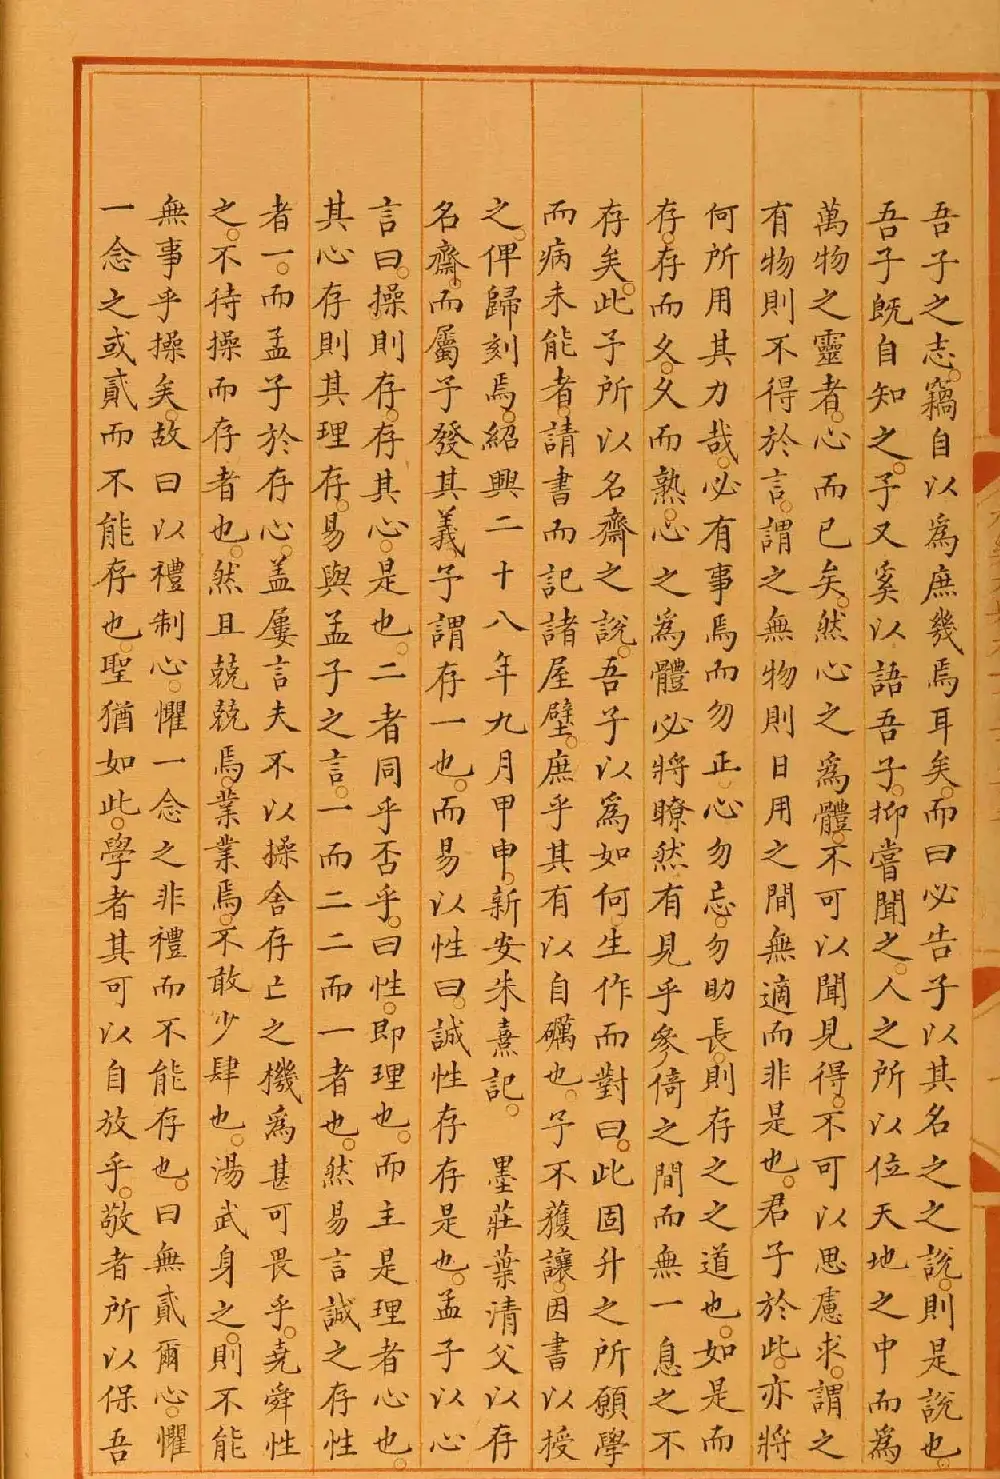 吾子之志。竊自以為庶幾焉耳矣。而曰必告子以其名之之說。則是說也。
吾子既自知之。子又奚以語吾子。抑嘗聞之。人之所以位天地之中而為
萬物之靈者。心而已矣。然心之為體。不可以聞見得。不可以思慮求。謂之
有物則不得於言。謂之無物則日用之間無適而非是也。君子於此。亦將
何所用其力哉。必有事焉而勿正。心勿忘。勿助長。則存之之道也。如是而
存。存而久。久而熟。心之為體必將瞭然有見乎參倚之間而無一息之不
存矣。此予所以名齋之說。吾子以為如何。生作而對曰。此固升之所願學
而病未能者。請書而記諸屋壁。庶乎其有以自礪也。予不獲讓。因書以授
之。俾歸刻焉。紹興二十八年九月甲申。新安朱熹記。 墨莊葉清父以存
名齋。而屬予發其義予謂存一也。而易以性曰。誠性存存是也。孟子以心
言曰。操則存。存其心。是也。二者同乎否乎。曰性。即理也。而主是理者心也。
其心存則其理存。易與孟子之言。一而二二而一者也。然易言誠之存性
者一。而孟子於存心。盖屢言夫不以操舍存亡之機為甚可畏乎。堯舜性
之。不待操而存者也。然且兢兢焉。業業焉。不敢少肆也。湯武身之。則不能
無事乎操矣。故曰以禮制心。懼一念之非禮而不能存也。曰無貳爾心。懼
一念之或貳而不能存也。聖猶如此。學者其可以自放乎。敬者所以保吾